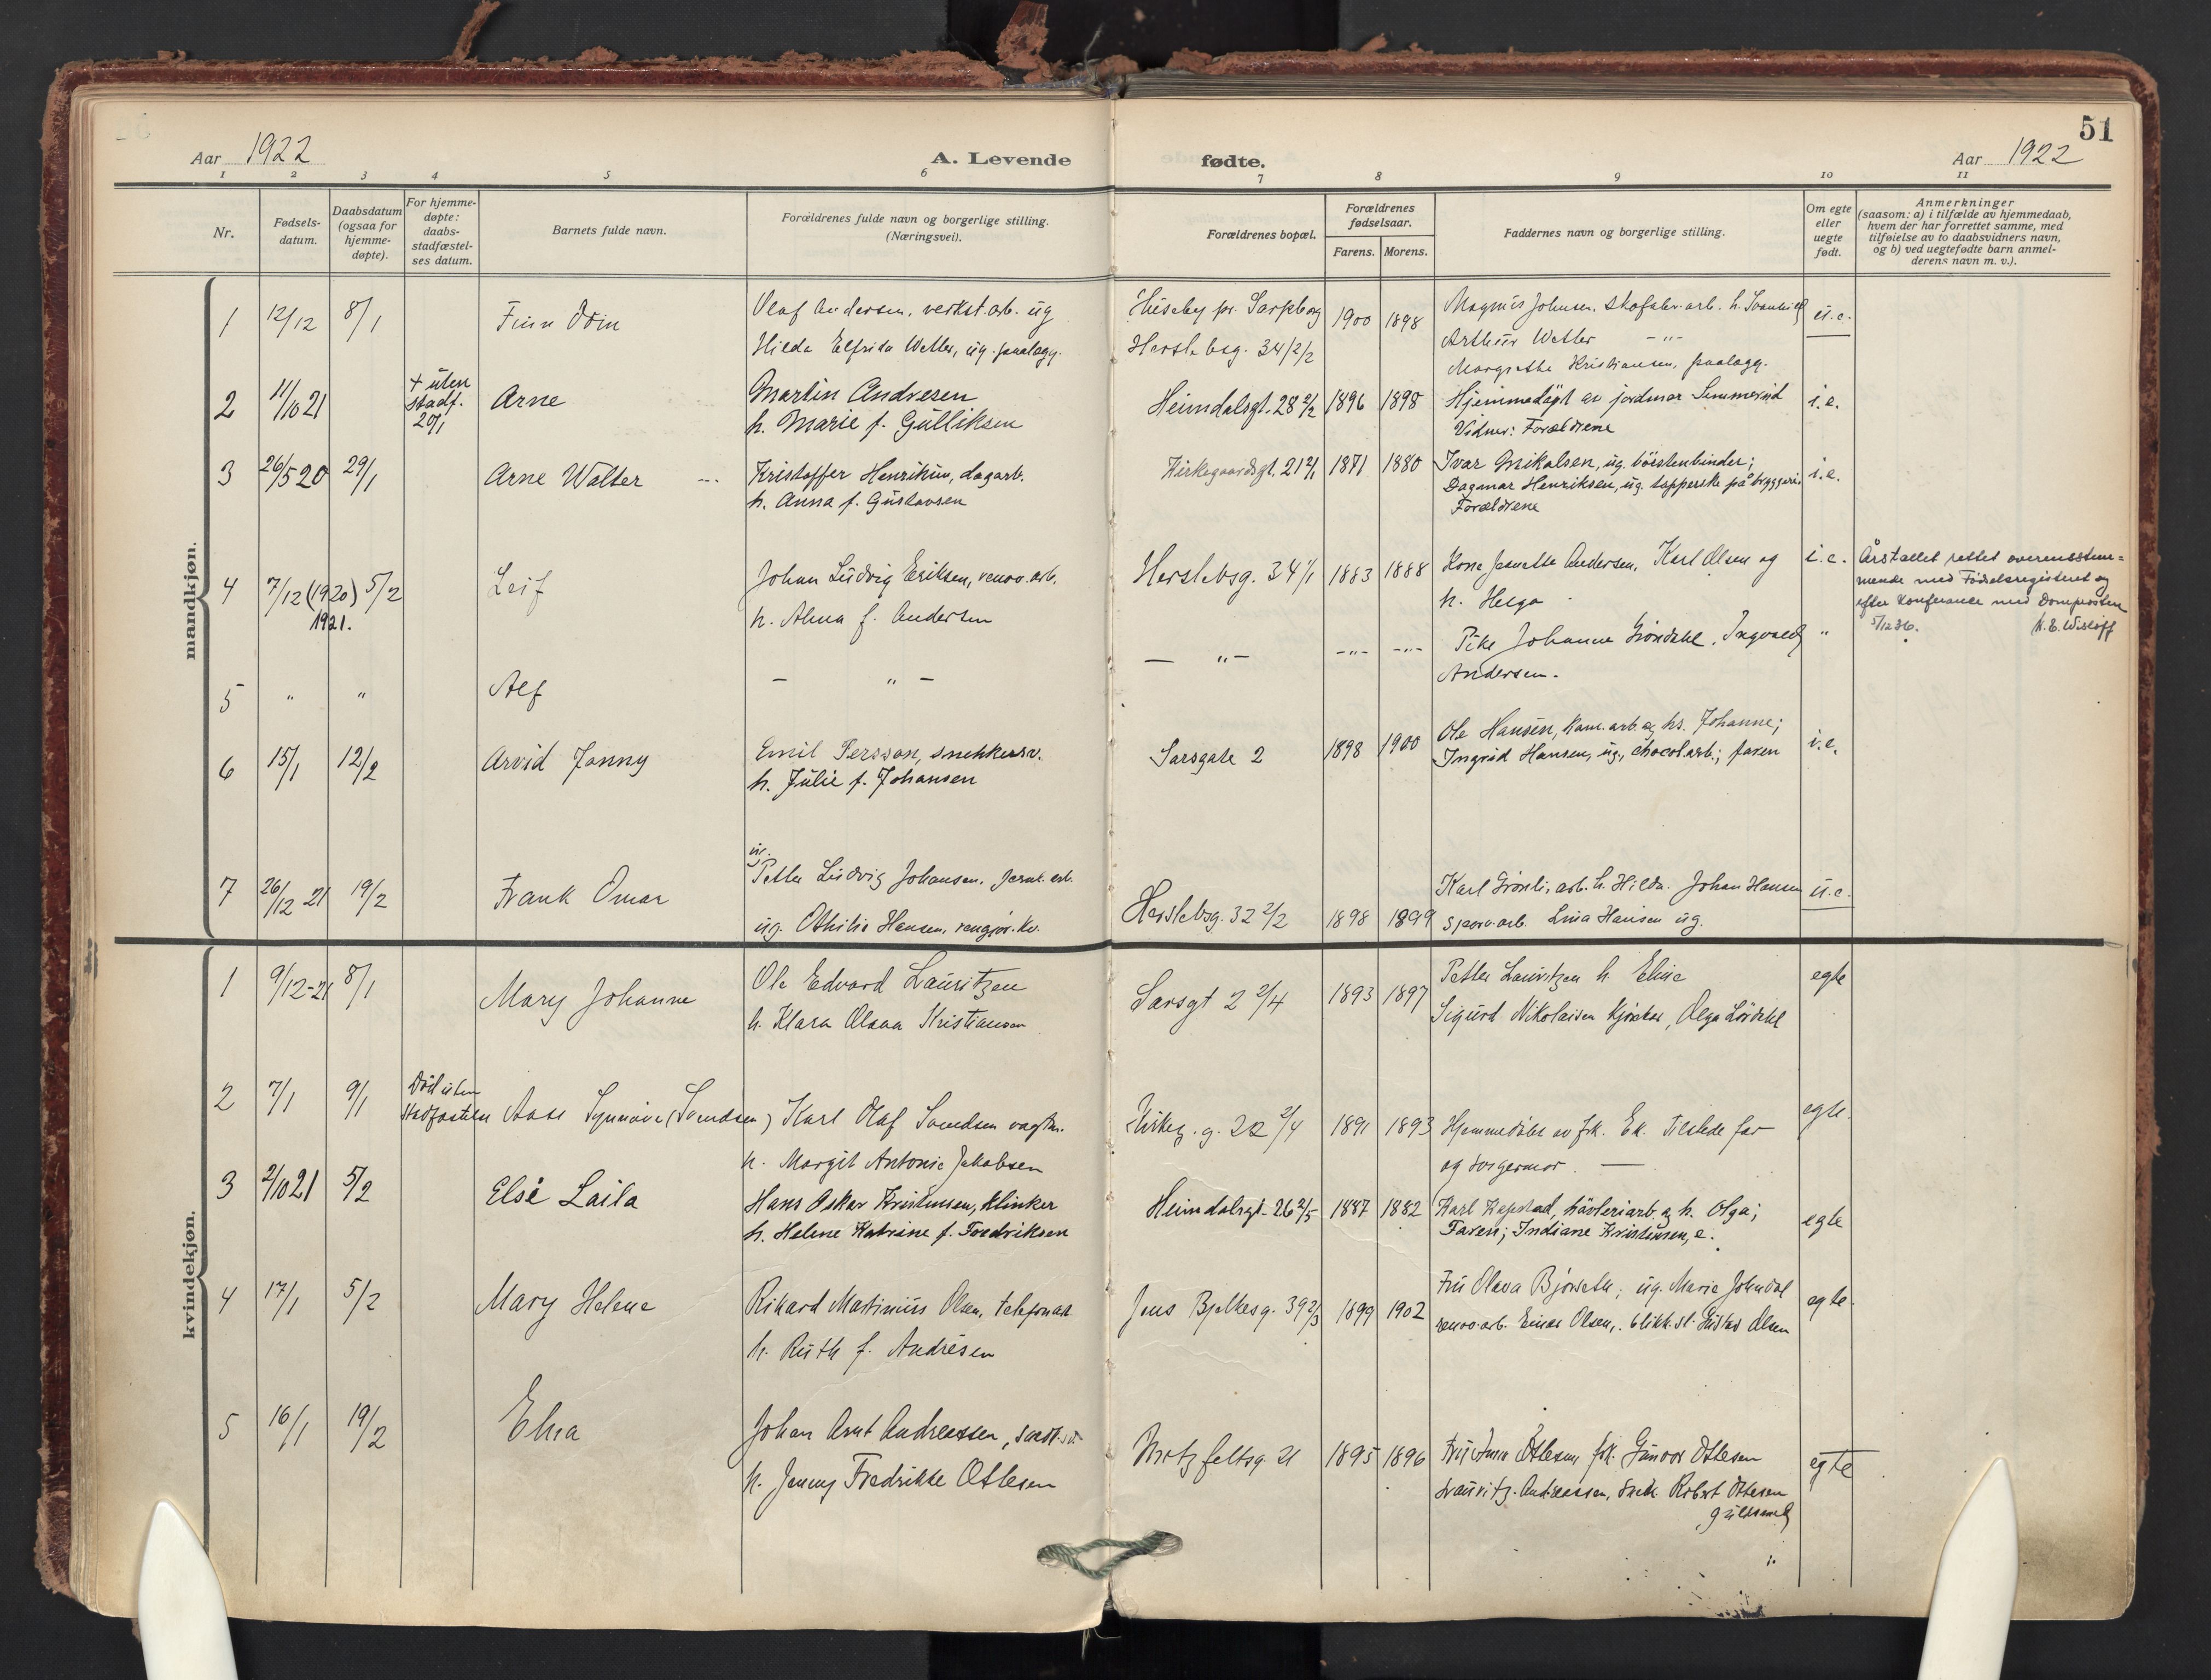 51
Aar 1922
A. Levende
fødte.
Aar 1922
1 2 3 4 5 6 7 8 9 10 11
Nr.
Fødsels-
datum.
Daabsdatum
(ogsaa for
hjemme-
døpte).
For hjemme-
døpte:
daabs-
stadfæstel-
ses datum.
Barnets fulde navn.
Forældrenes fulde navn og borgerlige stilling.
(Næringsvei).
Forældrenes bopæl.
Forældrenes
fødselsaar.
Farens. Morens.
Faddernes navn og borgerlige stilling.
Om egte
eller
uegte
født.
Anmerkninger
(saasom: a) i tilfælde av hjemmedaab,
hvem der har forrettet samme, med
tilføielse av to daabsvidners navn,
og b) ved uegtefødte barn anmel-
derens navn m. v.).
mandkjøn.
1 12/12 8/1 Finn Odin Olaf Andersen, verkst.arb. ug Huseby pr. Sarpborg 1900 1898 Magnus Johnsen, skofabr.arb. h. u.e.
Hilda Elfrida Wetler, ug. paalægg. Herslebsg. 34/2/2 Arthur Wetler - " -
Margrethe Kristiansen, paalægg.
2 11/10 21 + uten stadf. 20/1 Arne Martin Andresen Heimdalsgt. 28 2/2 1896 1898 Hjemmedøpt av jordmor i.e.
h. Marie f. Gulliksen Vidner: Forældrene
3 26/5 20 29/1 Arne Walter Kristoffer Henriksen, dagarb. Kirkegaardsgt. 21 2/1 1871 1880 Ivar Mikalsen, ug. børstenbinder; i.e.
h. Anna f. Gustavsen Dagmar Henriksen, ug. tapperske på bryggeri.
Forældrene
4 7/12 (1920) 5/2 Leif Johan Ludvig Eriksen, renov.arb. Herslebsg. 34 1/1 1883 1888 Kone Jeanette Andersen, Karl Olsen og i.e. Årstallet rettet overensstem-
1921. h. Alma f. Andersen h. Helga mende med Fødselsregisteret og
efter Konferanse med Domprosten
5/12 36. K. E. Wisløff
5 " " Alf - " - - " - - " - - " - Pike Johanne Grøndahl, Ingvald "
Andersen.
6 15/1 12/2 Arvid Jonny Emil Persson, snekkersv. Sarsgate 2 1898 1900 Ole Hansen, kom.arb. og hs. Johanne; i.e.
h. Julie f. Johansen Ingrid Hansen, ug., chocol.arb.; faren
7 26/12 21 19/2 Frank Omar ug. Petter Ludvig Johansen, jernb.arb. Herslebsg. 32 2/2 1898 1899 Karl Grønli, arb. h. Hilda. Johan Hansen u.e.
ug. Othilie Hansen, rengjør.kv. sporv.arb. Lina Hansen ug.
kvindekjøn.
1 9/12-21 8/1 Mary Johanne Ole Edvard Lauritzen Sarsgt 2 2/4 1893 1897 Petter Lauritzen h. Eline egte
h. Klara Olava Kristiansen Sigurd Nikolaisen kjørekar, Olga Lørdahl
2 7/1 9/1 Død uten stadfæstelse Aase Synnøve (Svendsen) Karl Olaf Svendsen vagtm. Kirkeg. g. 22 2/4 1891 1893 Hjemmedøbt av frk. Ek. Tilstede far egte.
h. Margit Antonie Jakobsen og svigermor. —
3 2/10 21 5/2 Else Laila Hans Oskar Kristensen, klinker Heimdalsgt. 26 2/5 1887 1882 Karl Kapstad, høvleriarb. og h. Olga; egte
h. Helene Katrine f. Fredriksen Faren; Indiane Kristensen, e.
4 17/1 5/2 Mary Helene Rikard Martinius Olsen, telefonarb. Jens Bjelkesg. 39 2/3 1899 1902 Fru Olava Bjørseth; ug. Marie Johndal egte.
h. Ruth f. Andrésen renov.arb. Einar Olsen, blikk.sl. Gustav Olsen
5 16/1 19/2 Elna Johan Arnt Andreassen, snedk.sv. Motzfeltsg. 21 1895 1896 Fru Ottesen, frk. Gunvor Ottesen egte
h. Jenny Fredrikke Ottesen Lauritz Andreassen, snedk. Robert Ottesen
guldsmed